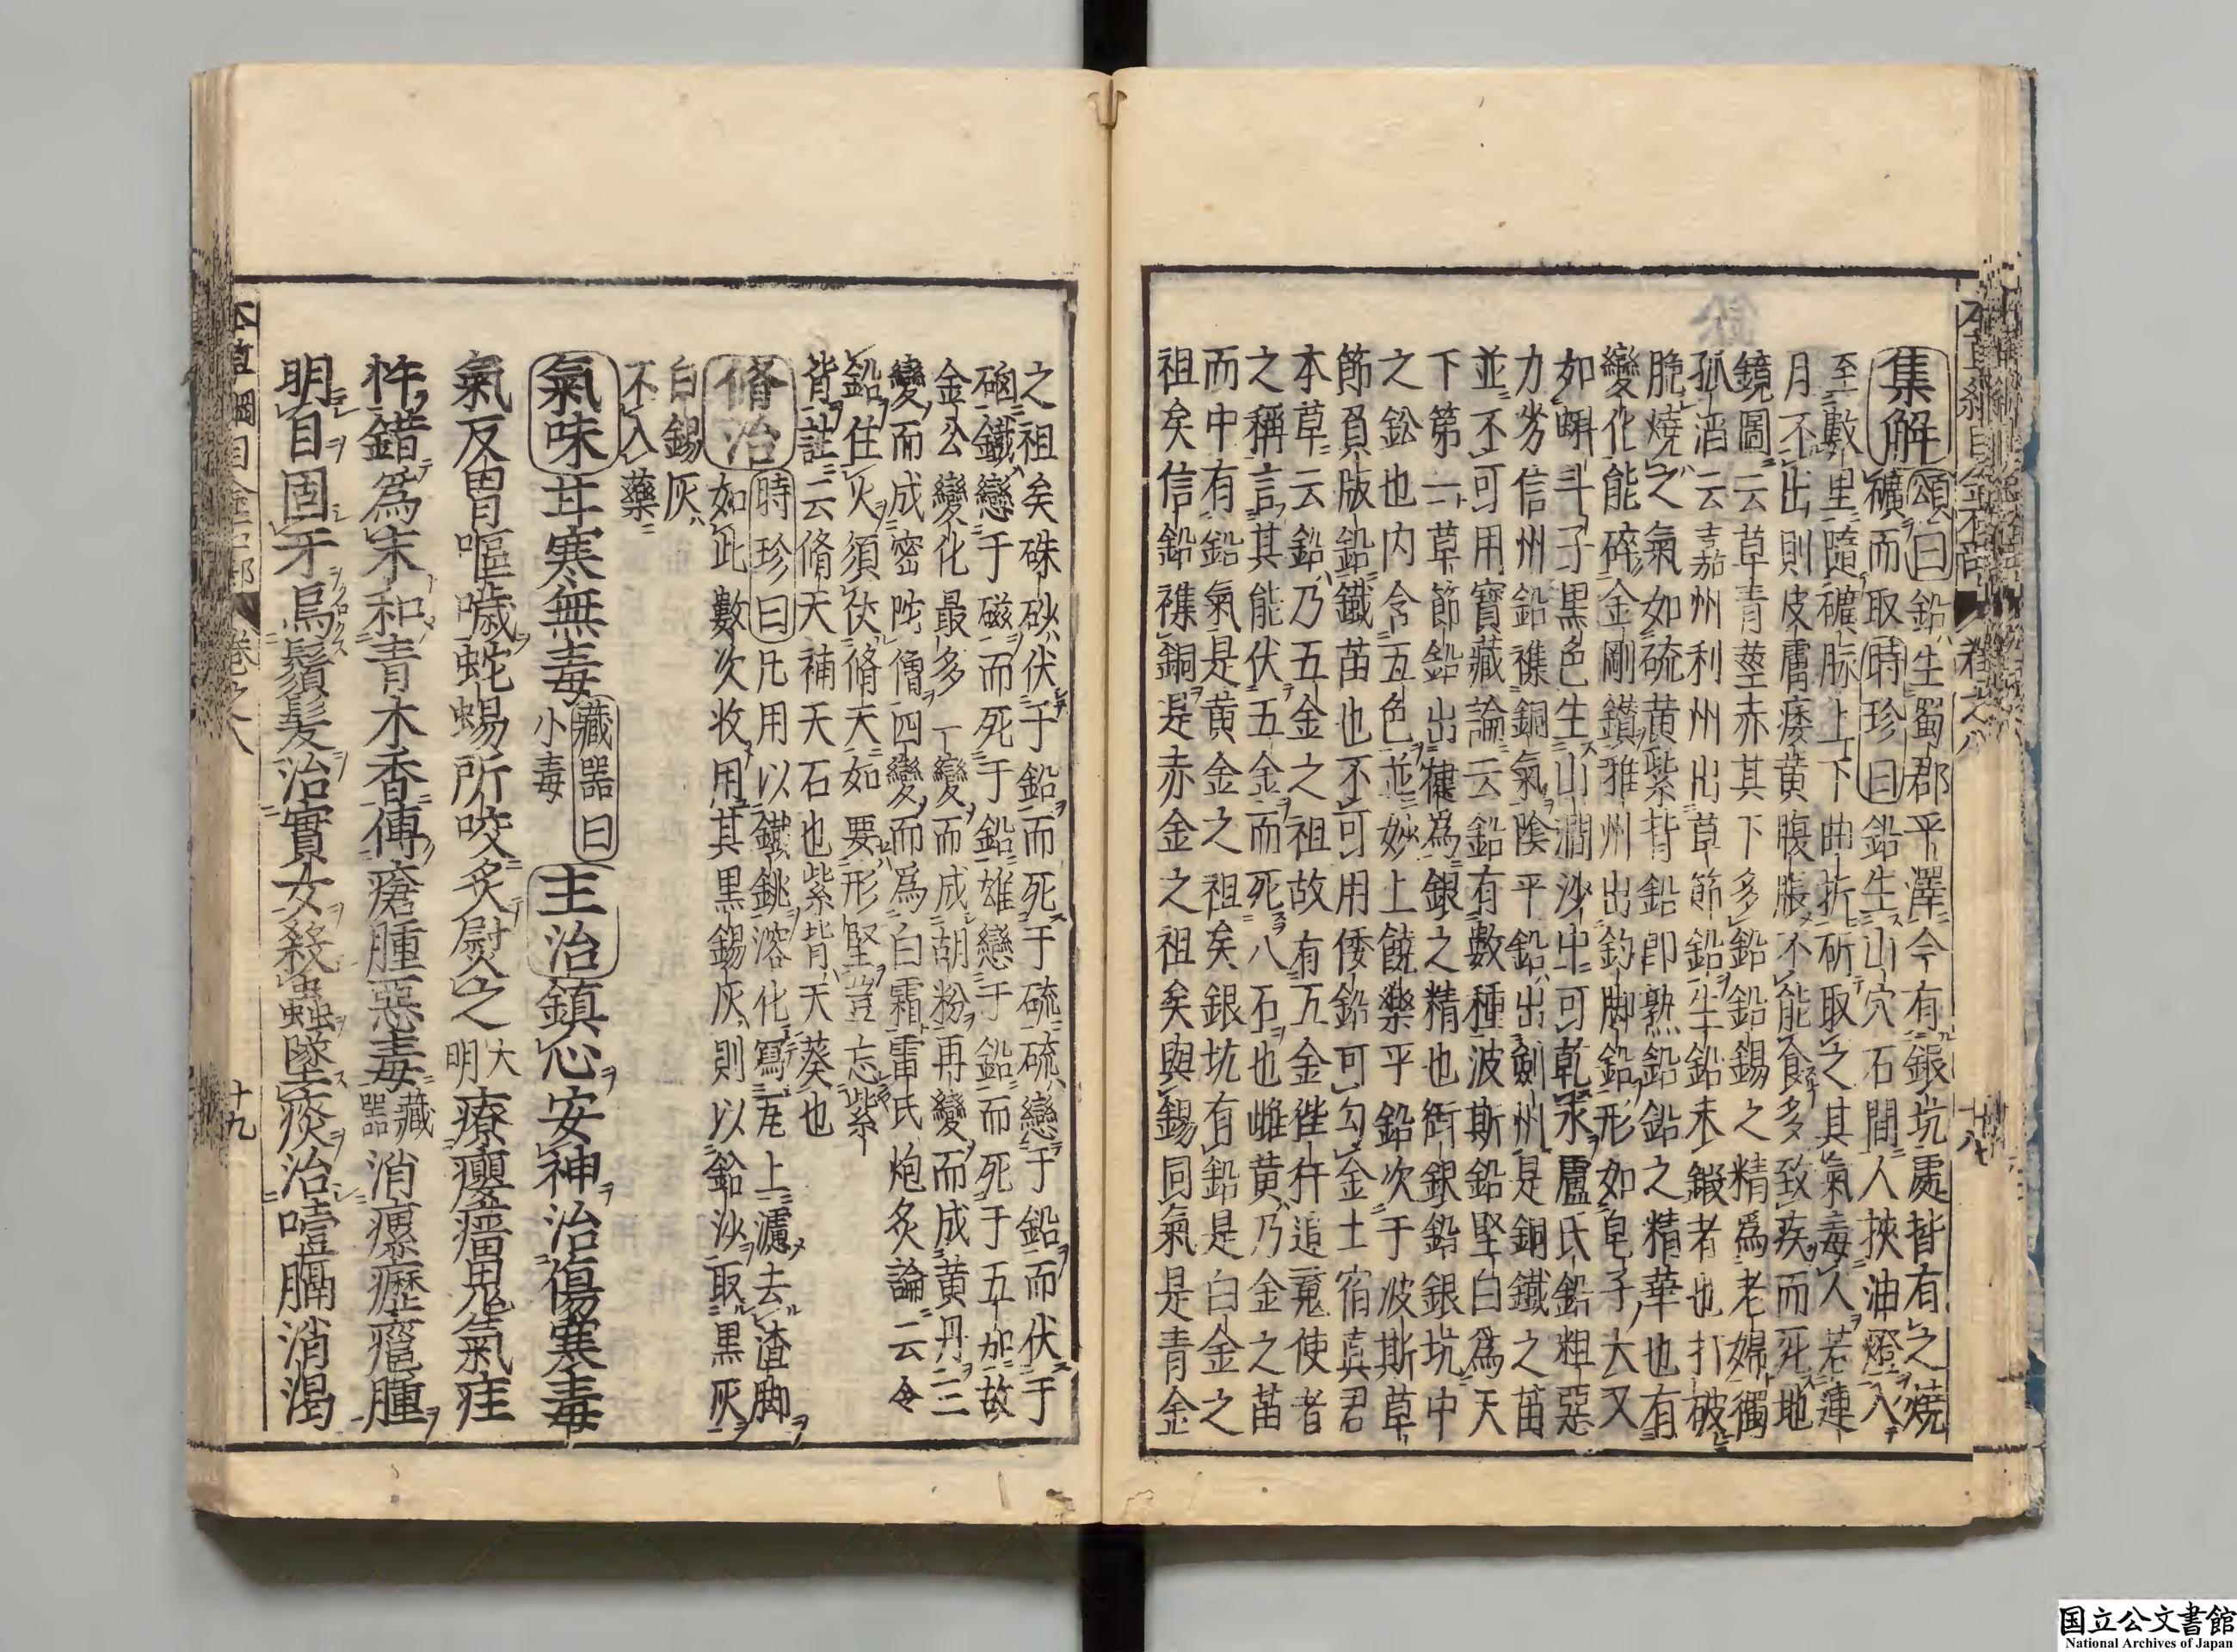 本草綱目金石部 卷之八 十八
集解
頌曰鉛生蜀郡平澤今有銀坑處皆有之燒
礦而取時珍曰鉛生山穴石間人挾油燈入
至數里隨礦脉上下曲折斫取之其氣毒人若連
月不出則皮膚痿黄腹脹不能食多致疾而死地
鏡圖云草青莖赤其下多鉛鉛錫之精爲老婦獨
孤滔云嘉州利州出草節鉛生鉛未鍛者也打破
脆燒之氣如硫黄紫背鉛即熟鉛鉛之精華也有
變化能碎金剛鑽雅州出釣脚鉛形如皂子大又
如蝌斗子黒色生山澗沙中可乾汞盧氏鉛粗惡
力劣信州鉛襍銅氣陰平鉛出劍州是銅鐵之苗
並不可用寶藏論云鉛有數種波斯鉛堅白爲天
下第一草節鉛出犍爲銀之精也銜銀鉛銀坑中
之鈆也内含五色並妙上饒樂平鉛次于波斯草
節負版鉛鐵苗也不可用倭鉛可勾金土宿真君
本草云鉛乃五金之祖故有五金狴犴追䰟使者
之稱言其能伏五金而死八石也雌黄乃金之苗
而中有鉛氣是黄金之祖矣銀坑有鉛是白金之
祖矣信鉛襍銅是赤金之祖矣與錫同氣是青金
之祖矣硃砂伏于鉛而死于硫硫戀于鉛而伏于
硇鐵戀于磁而死于鉛雄戀于鉛而死于五加故
金公變化最多一變而成胡粉再變而成黄丹三
變而成密陀僧四變而爲白霜雷氏炮炙論云令
鉛住火須仗脩天如要形堅豈忘紫
背註云脩天補天石也紫背天葵也
脩治
時珍曰凡用以鐵銚溶化寫瓦上濾去渣脚
如此數次收用其黒錫灰則以鉛沙取黒灰
白錫灰
不入藥
氣味甘寒無毒藏器曰小毒主治鎮心安神治傷寒毒
氣反胃嘔噦蛇蜴所咬炙熨之大明療癭瘤鬼氣疰
忤錯爲末和青木香傅瘡腫惡毒藏器消瘰癧癰腫
明目固牙烏鬚髪治實女殺蟲墜痰治噎膈消渴
本草綱目金石部 卷之八 十九
国立公文書館
National Archives of Japan